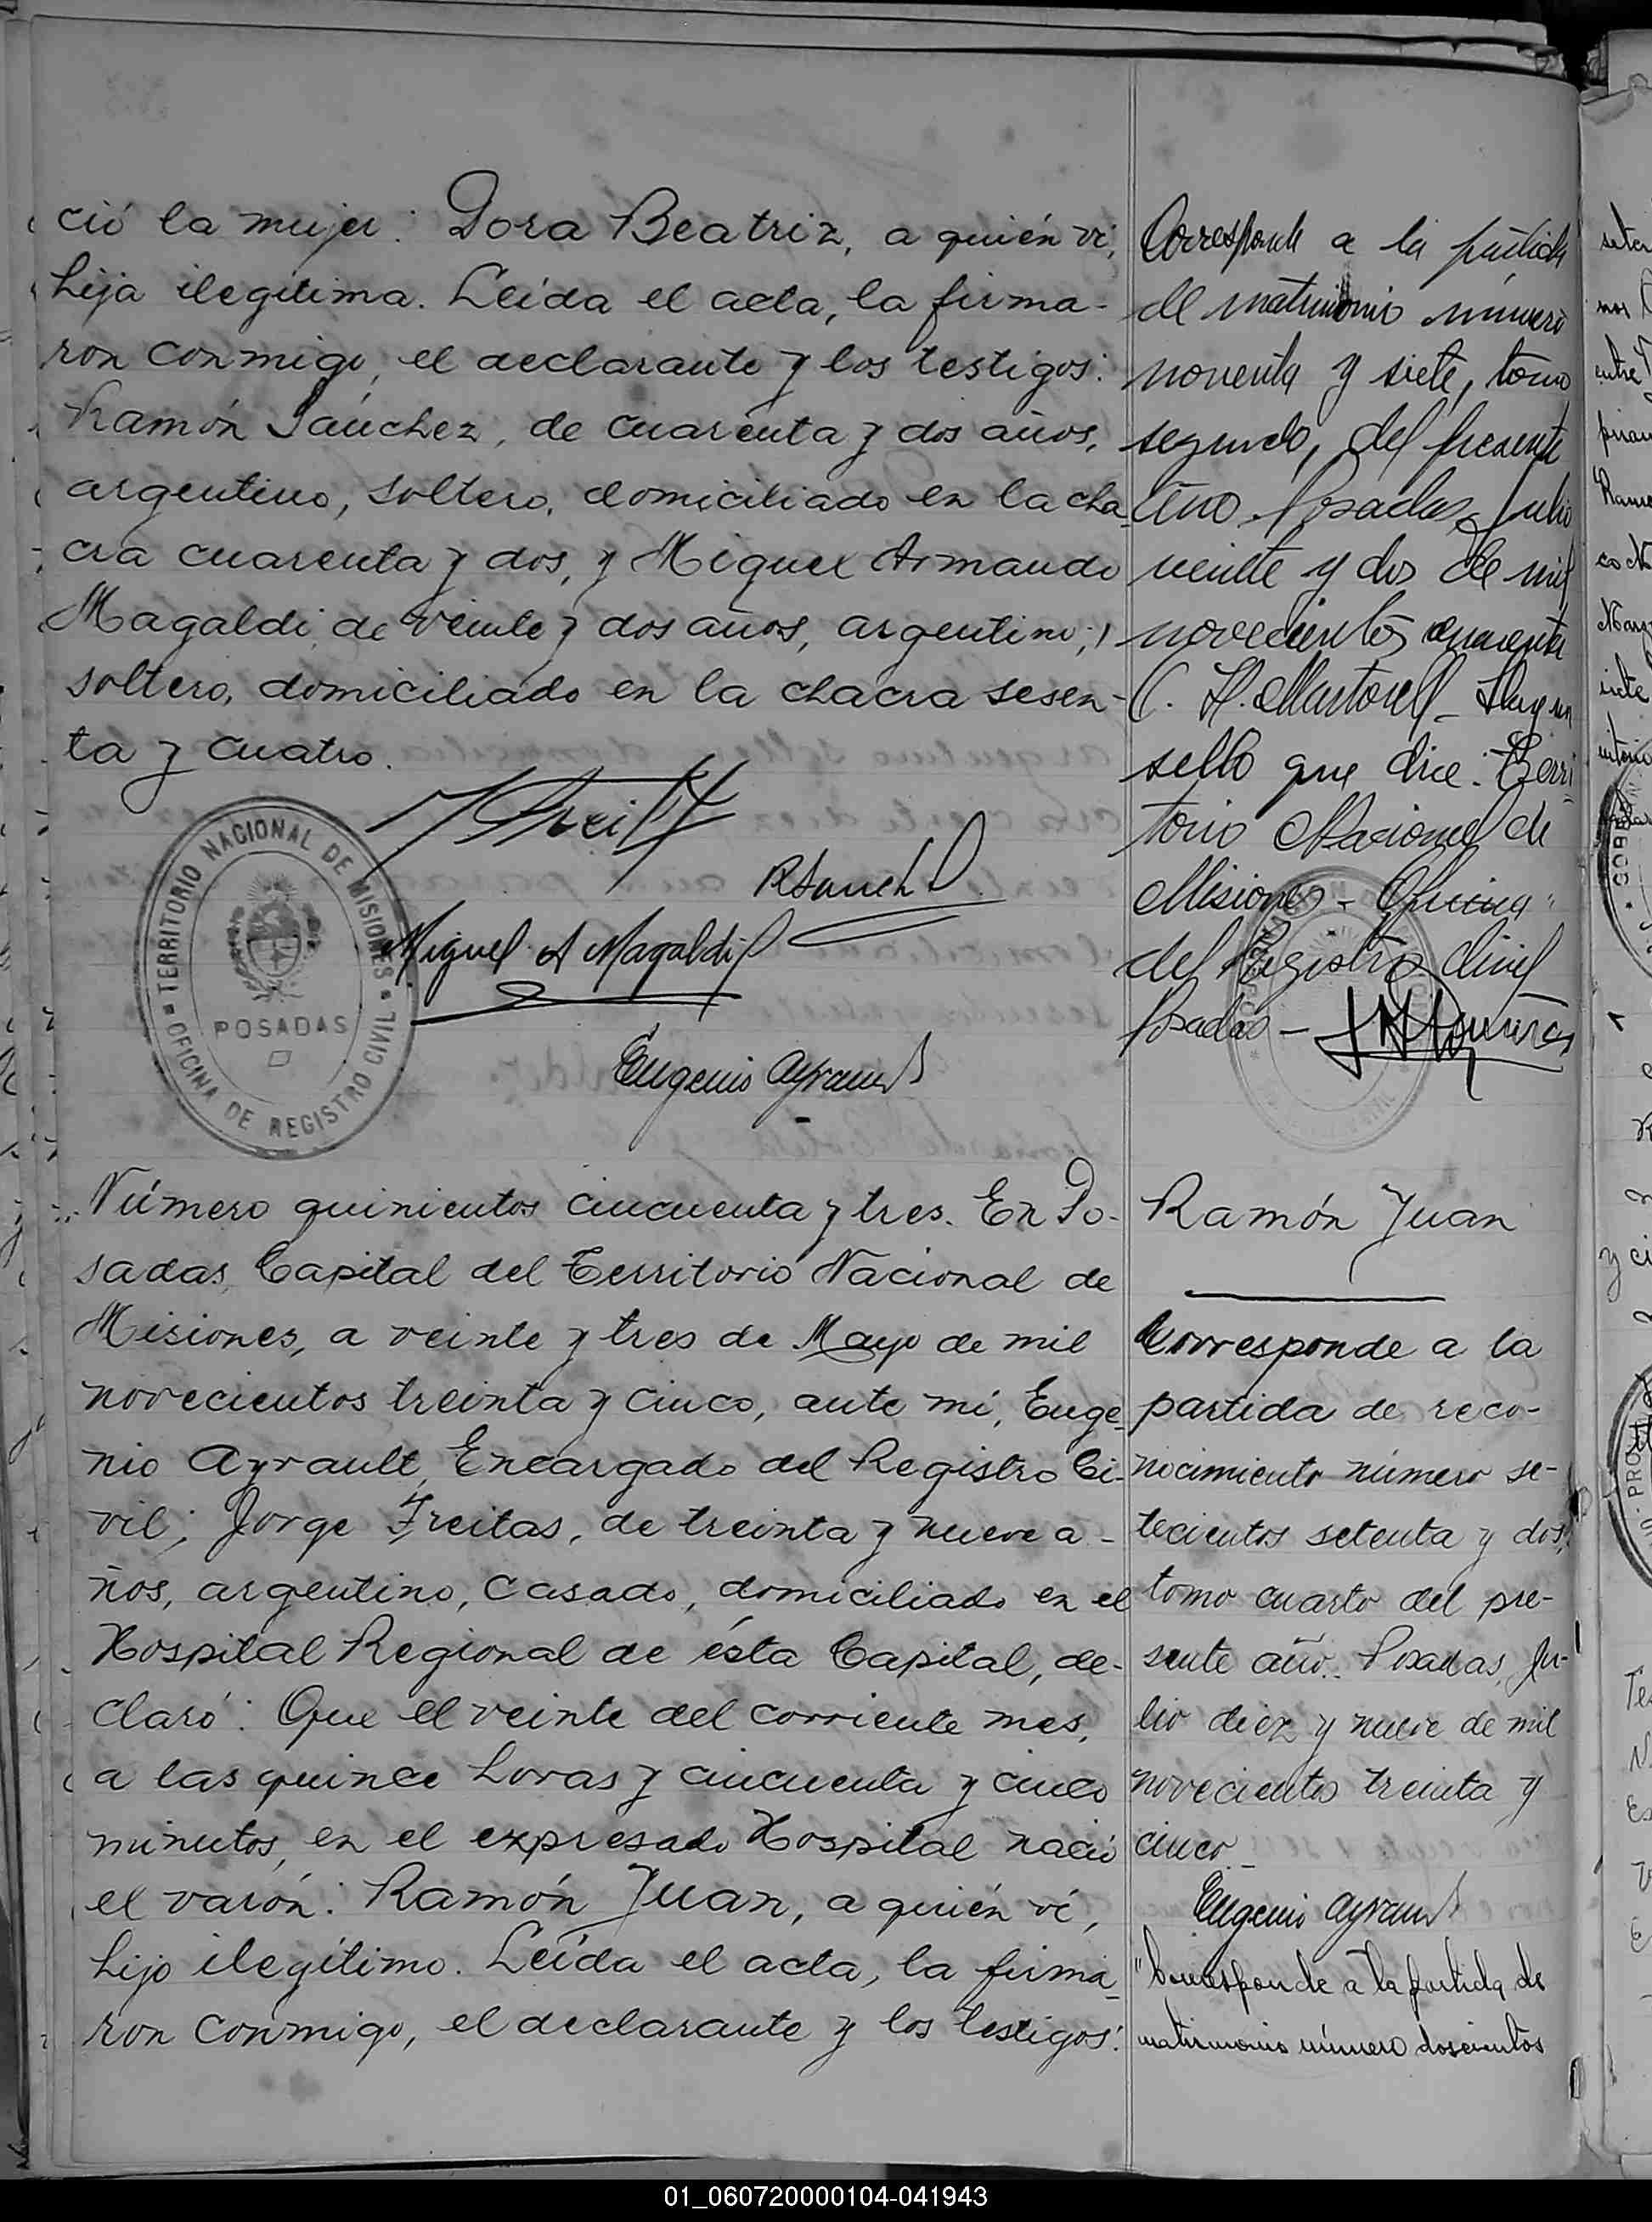 ció la mujer: Dora Beatriz, a quién ví,
hija ilegítima. Leída el acta, la firma-
ron conmigo, el declarante y los testigos:
Ramón Sánchez, de cuarenta y dos años,
argentino, soltero, domiciliado en la cha
cra cuarenta y dos, y Miguel Armando
Magaldi, de veinte y dos años, argentino,
soltero, domiciliado en la chacra sesen-
ta y cuatro.
RSanchez
Miguel A Magaldi
Eugenio Ayrault
TERRITORIO NACIONAL DE MISIONES
POSADAS
OFICINA DE REGISTRO CIVIL
Corresponde a la partida
de matrimonio número
noventa y siete, tomo
segundo, del presente
año. Posadas, Julio
veinte y dos de mil
novecientos cuarenta
C. H. Martorell - Hay un
sello que dice: Terri
torio Nacional de
Misiones - Oficina
del Registro Civil
Posadas -
Número quinientos cincuenta y tres. En Po-
sadas, Capital del Territorio Nacional de
Misiones, a veinte y tres de Mayo de mil
novecientos treinta y cinco, ante mí, Euge
nio Ayrault, Encargado del Registro Ci-
vil; Jorge Freitas, de treinta y nueve a-
ños, argentino, casado, domiciliado en el
Hospital Regional de ésta Capital, de-
claró: Que el veinte del corriente mes,
a las quince horas y cincuenta y cinco
minutos, en el expresado Hospital nació
el varón: Ramón Juan, a quién ví,
hijo ilegítimo. Leída el acta, la firma
ron conmigo, el declarante y los testigos:
Ramón Juan
Corresponde a la
partida de reco-
nocimiento número se-
tecientos setenta y dos,
tomo cuarto del pre-
sente año. Posadas, Ju-
lio diez y nueve de mil
novecientos treinta y
cinco
Eugenio Ayrault
"Corresponde a la partida de
matrimonio número doscientos
01_060720000104-041943